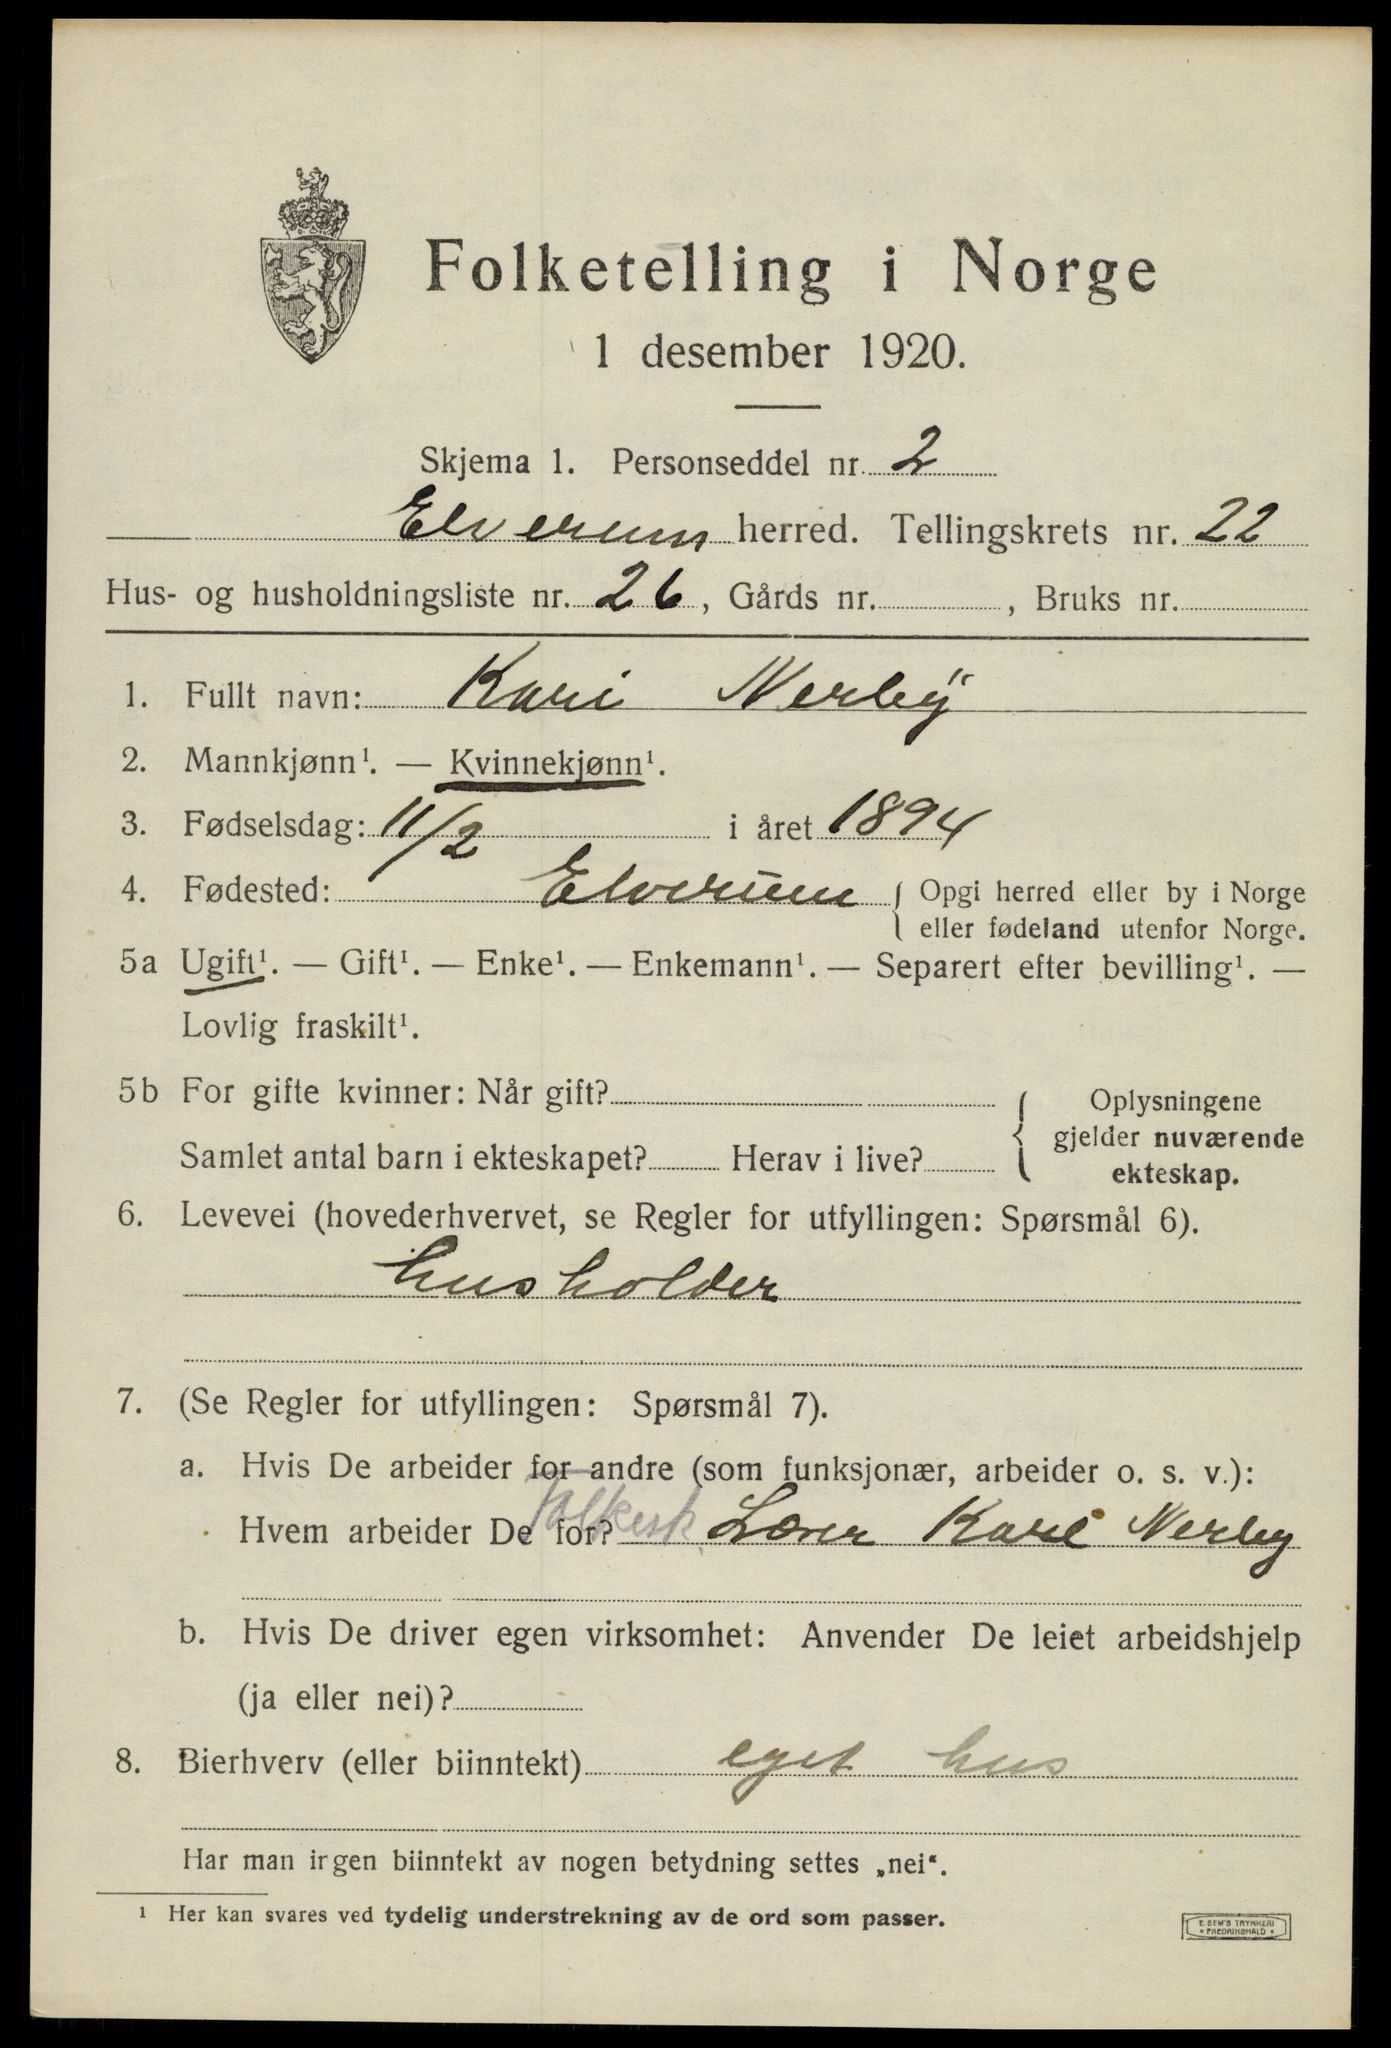 Folketelling i Norge
1 desember 1920.
Skjema 1. Personseddel nr. 2
Elverum herred. Tellingskrets nr. 22
Hus- og husholdningsliste nr. 26, Gårds nr. , Bruks nr.
1. Fullt navn: Kari Nerby
2. Mannkjønn¹. — Kvinnekjønn¹.
3. Fødselsdag: 11/2 i året 1894
4. Fødested: Elverum { Opgi herred eller by i Norge
eller fødeland utenfor Norge.
5a Ugift¹. — Gift¹. — Enke¹. — Enkemann¹. — Separert efter bevilling¹. —
Lovlig fraskilt¹.
5b For gifte kvinner: Når gift? { Oplysningene
gjelder nuværende
Samlet antal barn i ekteskapet? Herav i live?
ekteskap.
6. Levevei (hovederhvervet, se Regler for utfyllingen: Spørsmål 6).
husholder
7. (Se Regler for utfyllingen: Spørsmål 7).
a. Hvis De arbeider for andre (som funksjonær, arbeider o. s. v.):
folkesk.
Hvem arbeider De for? Lærer Karl Nerby
b. Hvis De driver egen virksomhet: Anvender De leiet arbeidshjelp
(ja eller nei)?
8. Bierhverv (eller biinntekt) eget hus
Har man irgen biinntekt av nogen betydning settes „nei“.
¹ Her kan svares ved tydelig understrekning av de ord som passer.
E. SEM'S TRYKKERI
FREDRIKSHALD